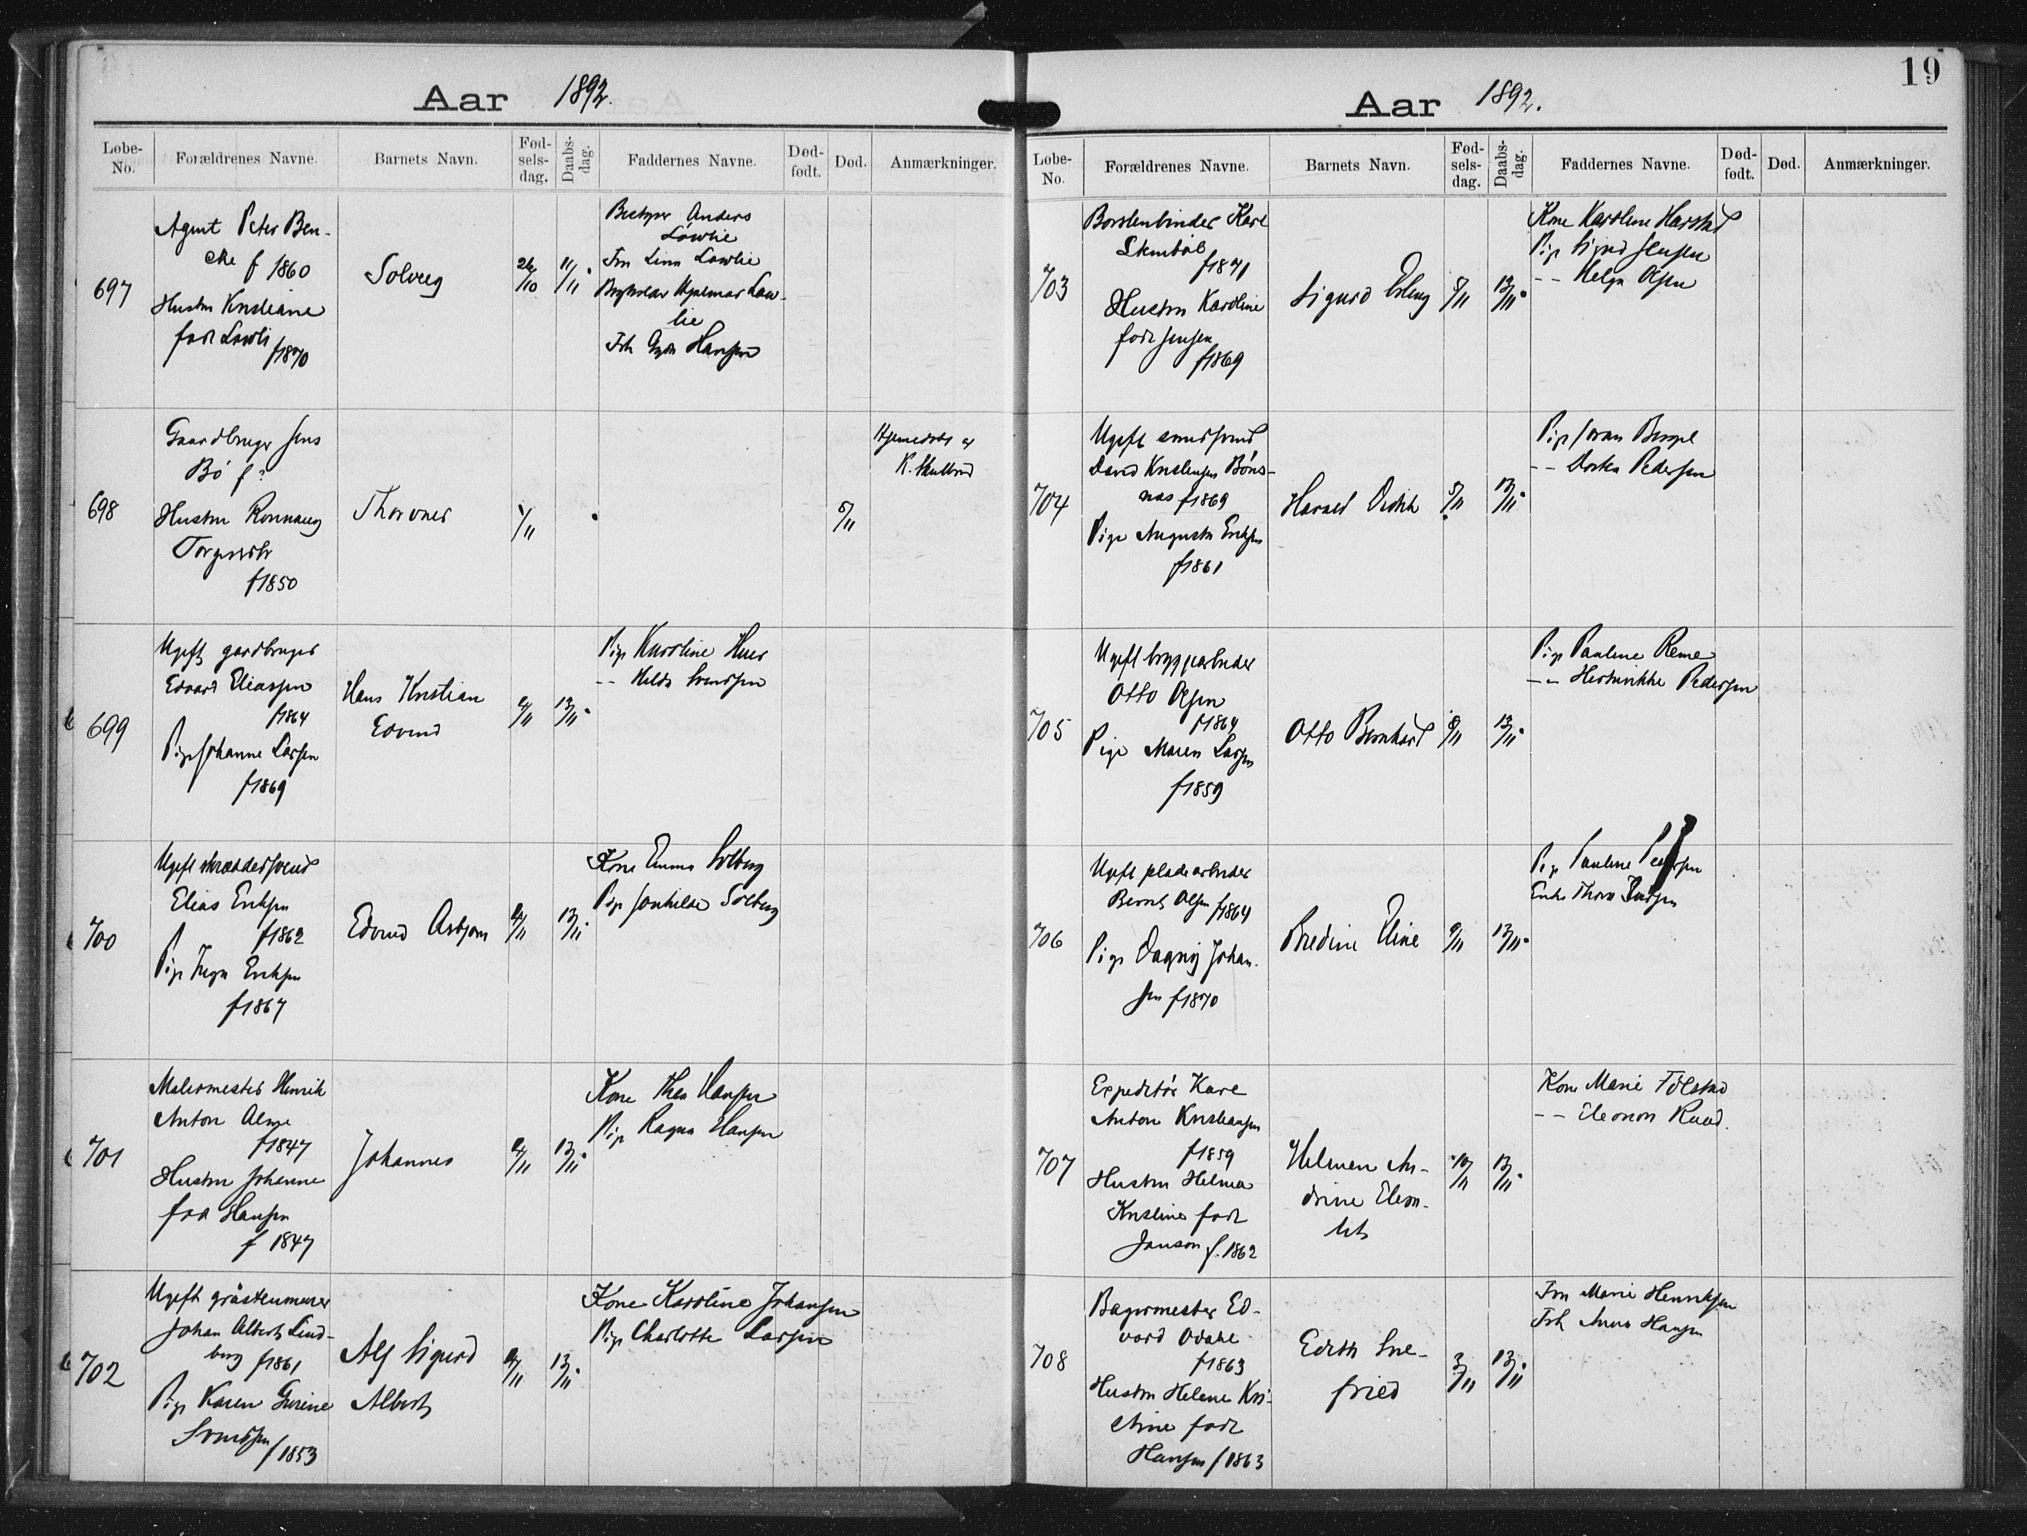 Aar 1892.
Løbe-No. Forældrenes Navne. Barnets Navn. Fød-sels-dag. Daabs-dag. Faddernes Navne. Død-født. Død. Anmærkninger.
697
Agent Peter Ben-
che f 1860
Hustru Kristiane
født Lowli
f1870
Solveig
26/10
11/11
Bestyrer Anders
Lowlie
Fru Lina Lowlie
Hjalmar Low-
lie
Frk Hansen
698
Gaardbruger Jens
Bö f?
Hustru Ronnaug
f1850
Thorvner
1/11
5/11
Hjemedøbt af
699
Ugift gardbruger
Edvard Eliassen
f1864
Pige Johanne Larsen
f1869
Hans Kristian
Edvind
4/11
13/11
Pige Karoline
-- Hilda Svendsen
700
Ugift skræddersvend
Elias Eriksen
f1862
Pige Inga Eriksen
f1867
Edvind Asbjorn
13/11
Kone Emma Solberg
Pige Solberg
701
Malermester Henrik
Anton
f1847
Hustru Johanne
født Hansen
f 1847
Johannes
13/11
Kone Thea Hansen
Pige Ragna Hansen
702
Ugift gråstenmurer
Johan Albert Lind-
berg f1861
Pige Karen Gurine
Svendsen f1853
Alf Sigurd
Albert
13/11
Kone Karoline Johansen
Pige Charlotte Larsen
Aar 1892.
19
Løbe-No. Forældrenes Navne. Barnets Navn. Fød-sels-dag. Daabs-dag. Faddernes Navne. Død-født. Død. Anmærkninger.
703
Borstenbinder Karl
f1871
Hustru Karoline
født Jensen
f1869
Sigurd Erling
13/11
Kone Karoline Harstad
Pige Sigrid Jensen
-- Helga Olsen
704
Ugift smedsvend
David Kristensen Böns-
nas f1869
Pige Augusta Eriksen
f1861
Harald
5/11
13/11
Pige
-- Dorthea Pedersen
705
Ugift bryggearbeider
Otto Olsen
f1864
Pige Maren Larsen
f1859
Otto Bernhard
13/11
Pige Pauline Reme
-- Hendrikke Pedersen
706
Ugift pladearbeider
Bernt Olsen f1864
Pige Dagny Johan-
sen f1870
Bredine Eline
9/11
13/11
Pige Pauline
Enke Thora
707
Expeditör Karl
Anton Kristiansen
f1859
Hustru Helma
Kristine født
Janson f. 1862
Helmen An-
drine
10/11
13/11
Kone Marie Tölstad
-- Eleonora Ruud.
708
Bagermester Ed-
vard
f1863
Hustru Helene Kri-
stine født
Hansen f1863
Edith Sne-
fried
3/11
13/11
Fru Marie Henriksen
Frk Anna Hansen